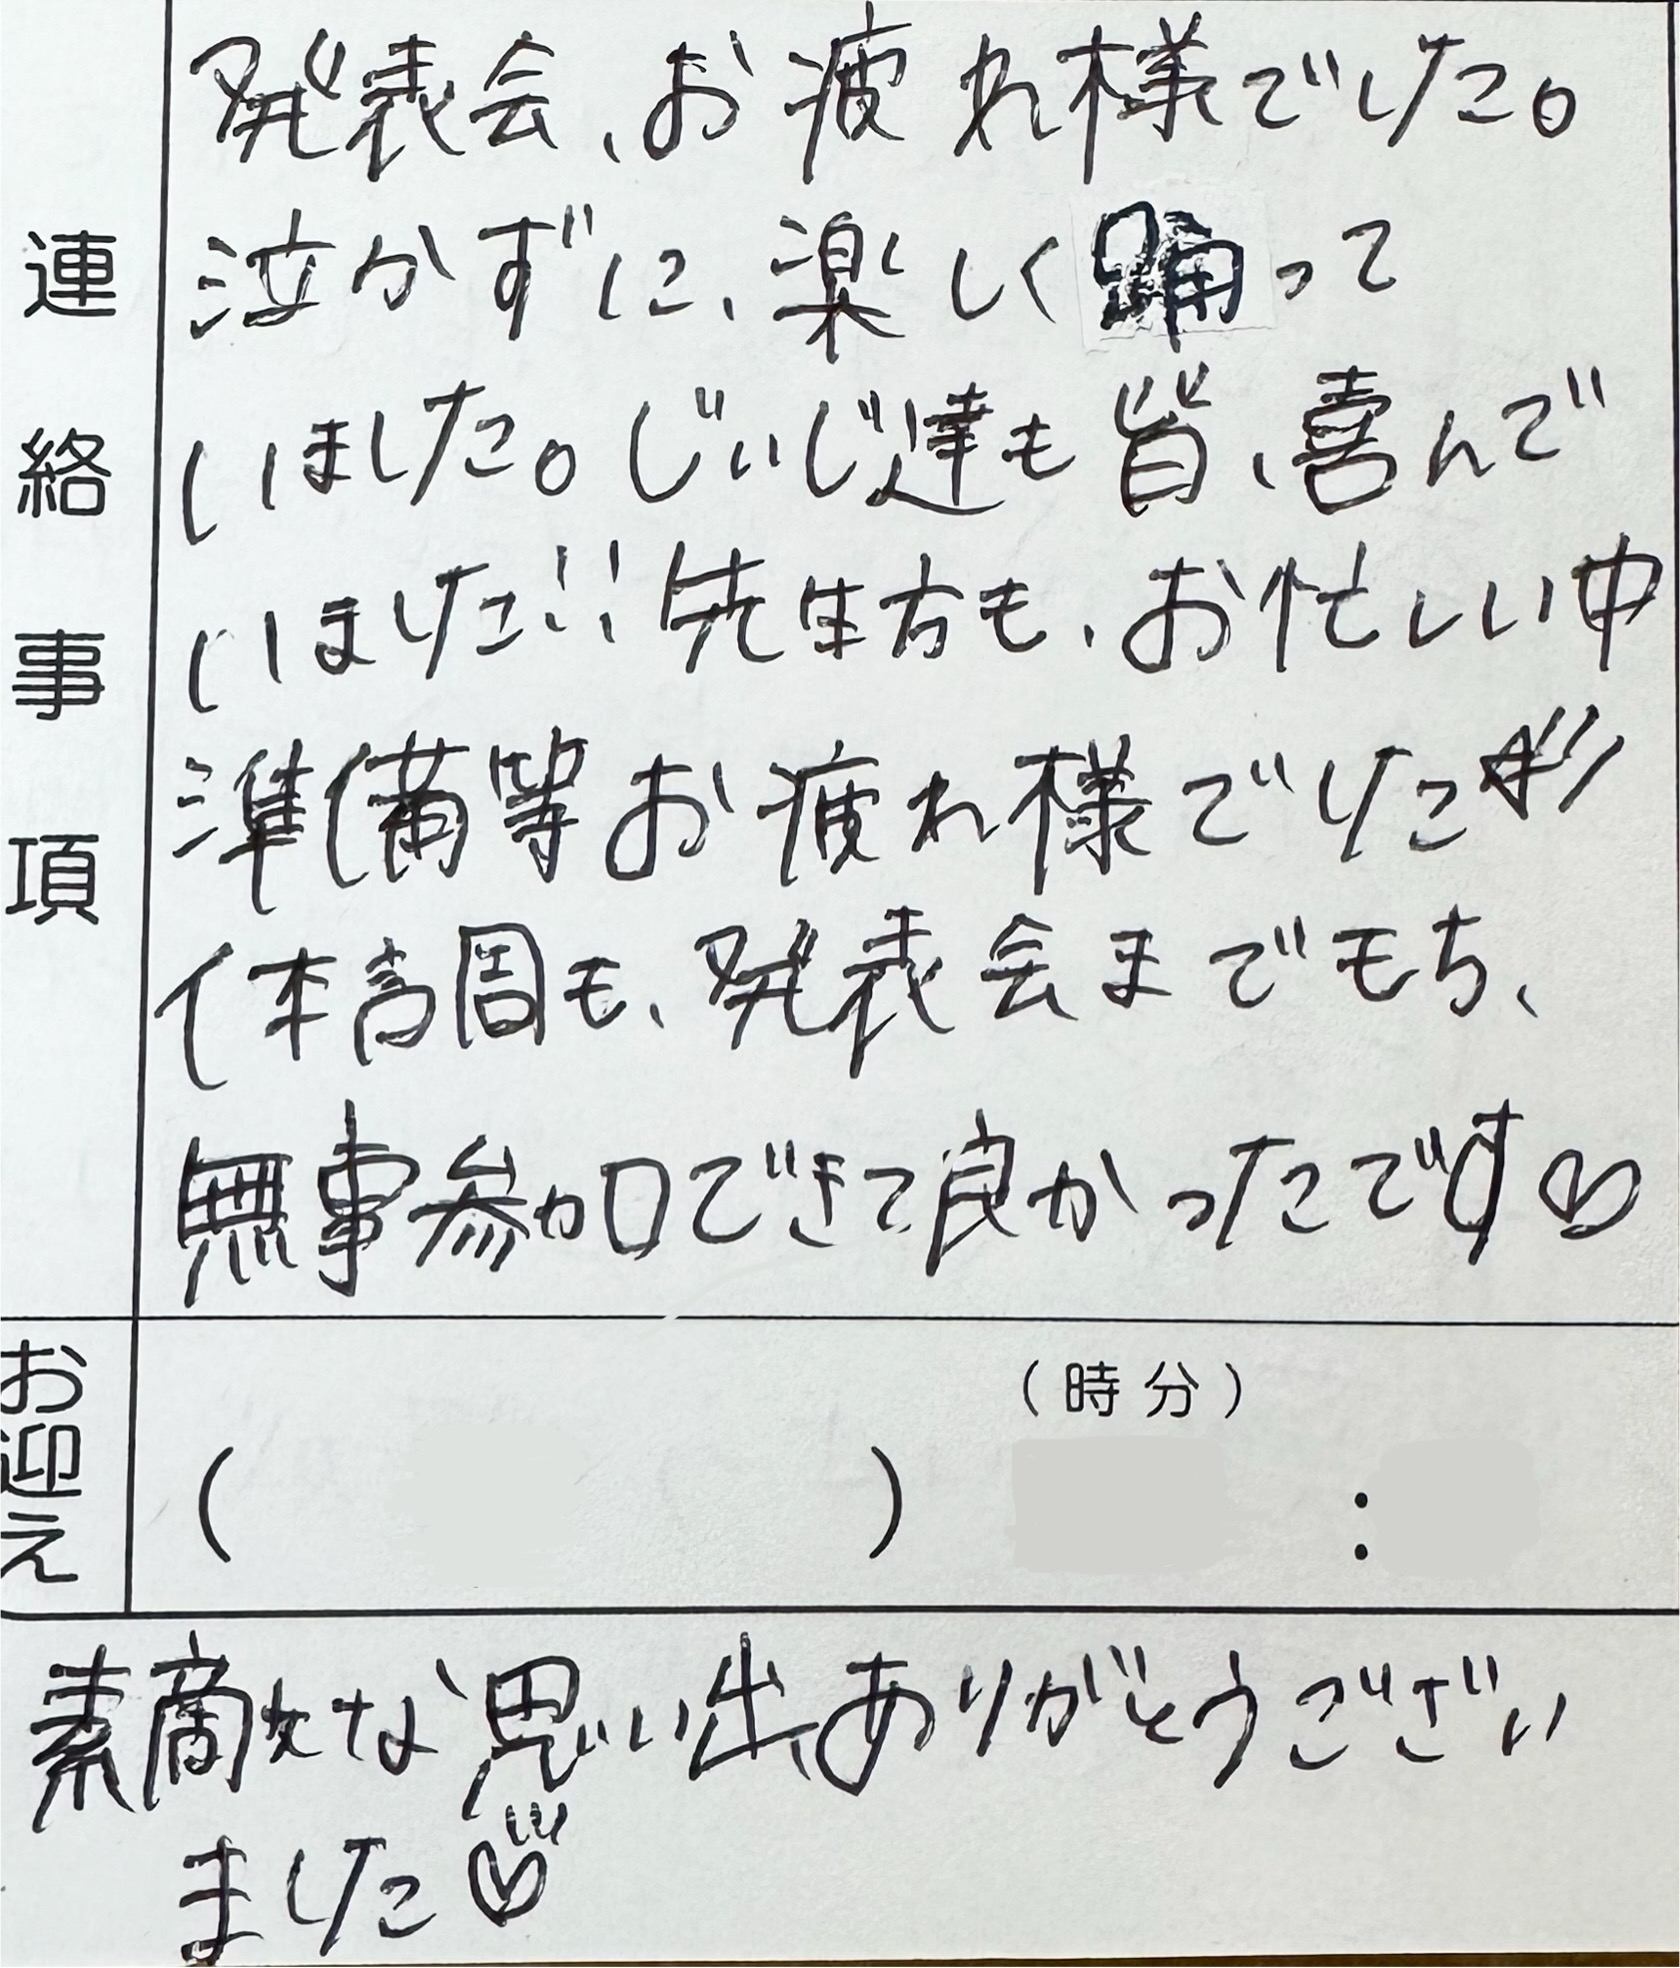 連絡事項
発表会、お疲れ様でした。
泣かずに、楽しく踊って
いました。じぃじ達も皆、喜んで
いました!! 先生方も、お忙しい中
準備等お疲れ様でした
体調も、発表会までもち、
無事参加できて良かったです♡
お迎え
(時分)
( ) :
素敵な思い出、ありがとうござい
ました♡